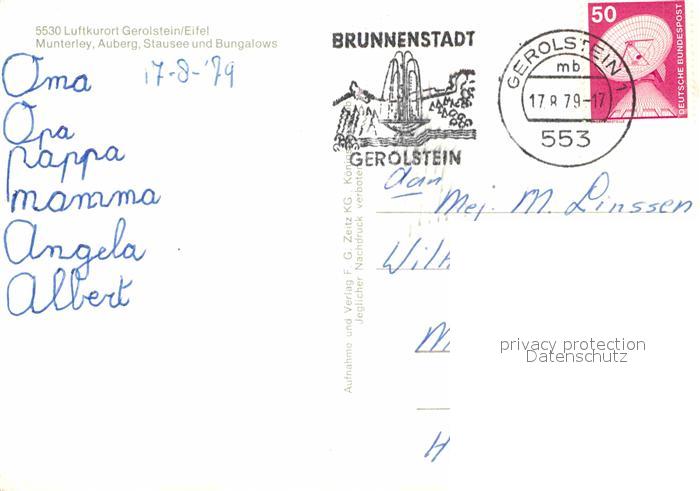 5530 Luftkurort Gerolstein/Eifel
Munterley, Auberg, Stausee und Bungalows
17-8-'79
Oma
Opa
pappa
mamma
Angela
Albert
BRUNNENSTADT
GEROLSTEIN
GEROLSTEIN 1
mb
17.8.79-17
553
50
DEUTSCHE BUNDESPOST
Aufnahme und Verlag F. G. Zeitz KG., König
Jeglicher Nachdruck verboten
aan
Mej. M. Linssen
Wil
M
H
privacy protection
Datenschutz